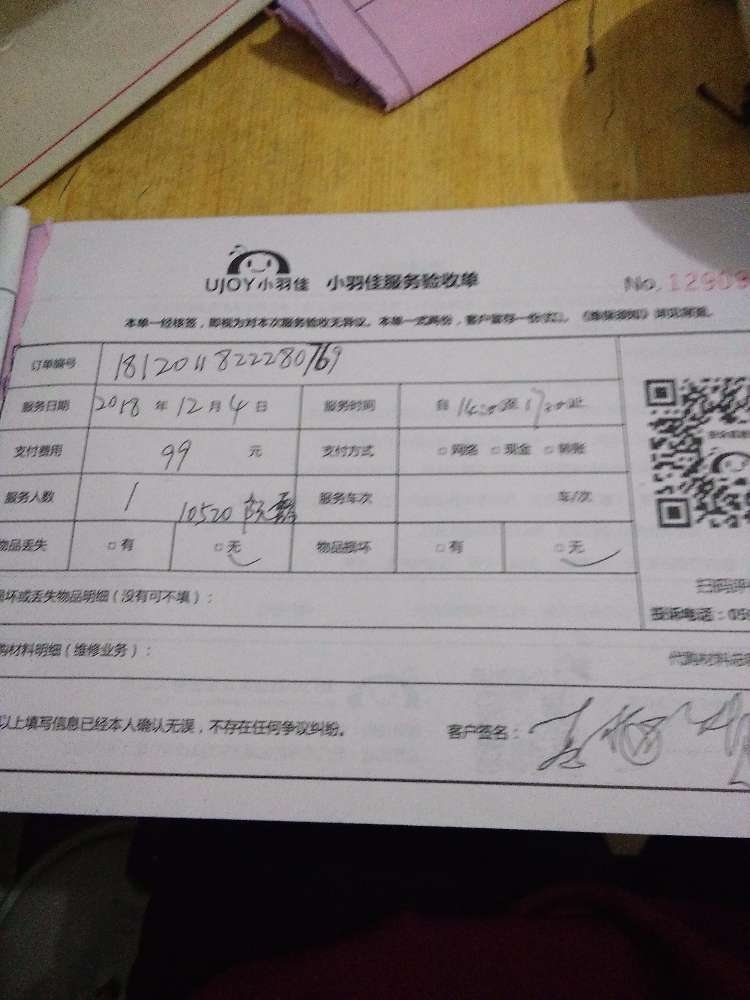 UJOY小羽佳 小羽佳服务验收单 No. 12909
本单一经核签，即视为对本次服务验收无异议。本单一式两份，客户留存一份
订单编号 1812011822280769
服务日期 2018 年 12 月 4 日 服务时间 自 至
支付费用 99 元 支付方式 □网络 □现金 □转账
服务人数 1 10520 服务车次 车/次
物品丢失 □有 □无 物品损坏 □有 □无
坏或丢失物品明细（没有可不填）：
投诉电话：
购材料明细（维修业务）：
代购材料
以上填写信息已经本人确认无误，不存在任何争议纠纷。 客户签名：